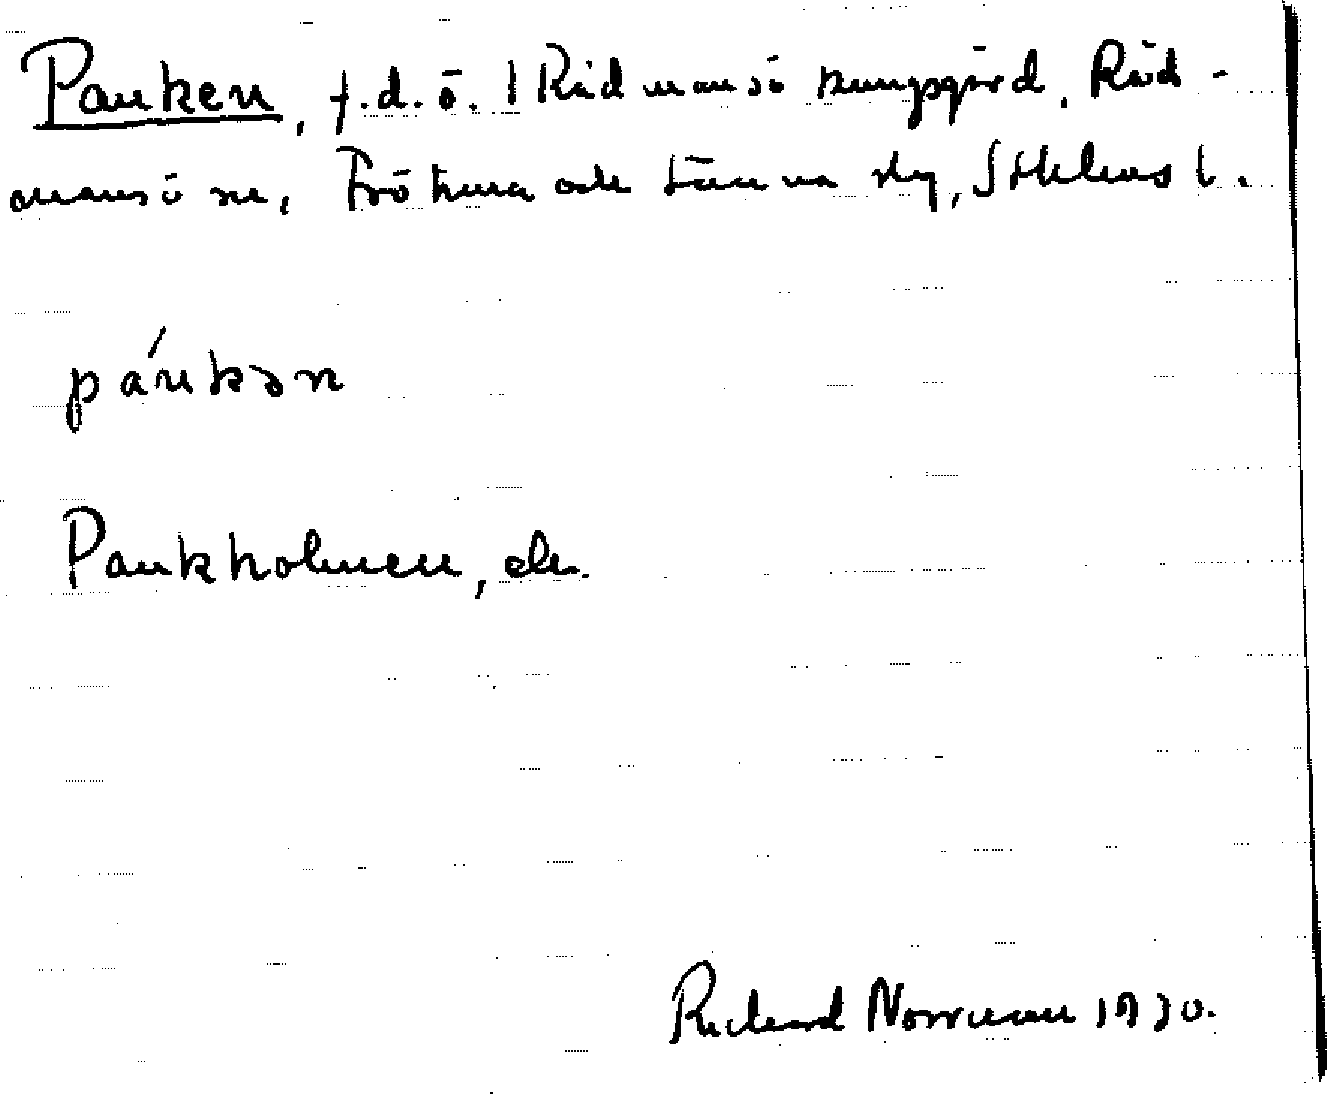 Pauken, f.d.ö. / Rådmansö kungsgård, Råd-
mansö sn, Frötuna och Länna sky, Sthlms l.
páukən
Paukholmen, ek.
Richard Norrman 1930.